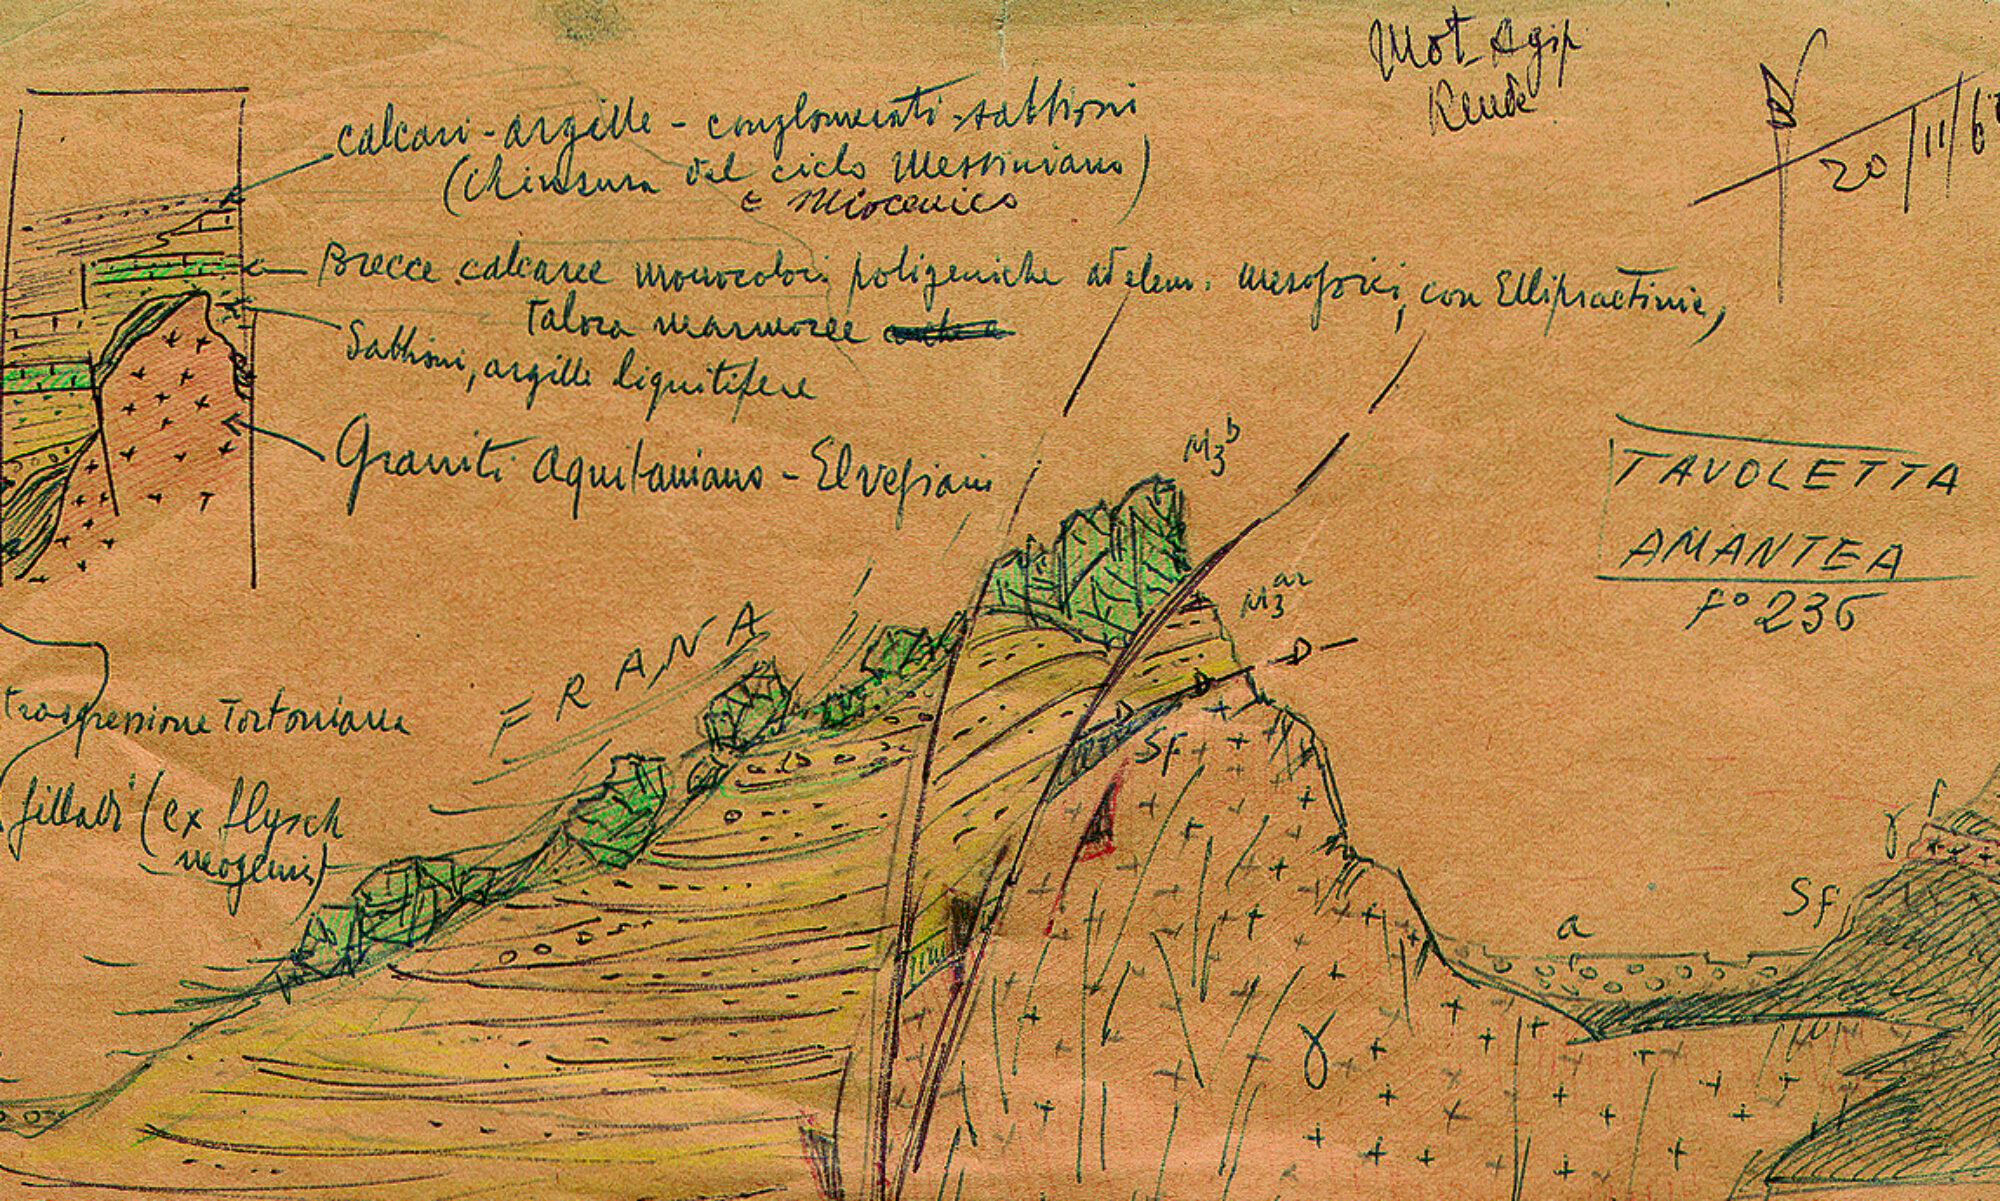 Mot. Agip
Rende
20/11/6
calcari - argille - conglomerati - sabbioni
(chiusura del ciclo Messiniano)
e Miocenico
Brecce calcaree monocolori poligeniche ad elem. mesozoici, con Ellipsactinie,
Talora marmoree
Sabbioni, argille lignitifere
Graniti Aquitaniano - Elveziani
M3b
TAVOLETTA
AMANTEA
F° 236
M3ar
FRANA
trasgressione Tortoniana
Sf
filladi (ex flysch
neogenici)
γ
Sf
a
γ